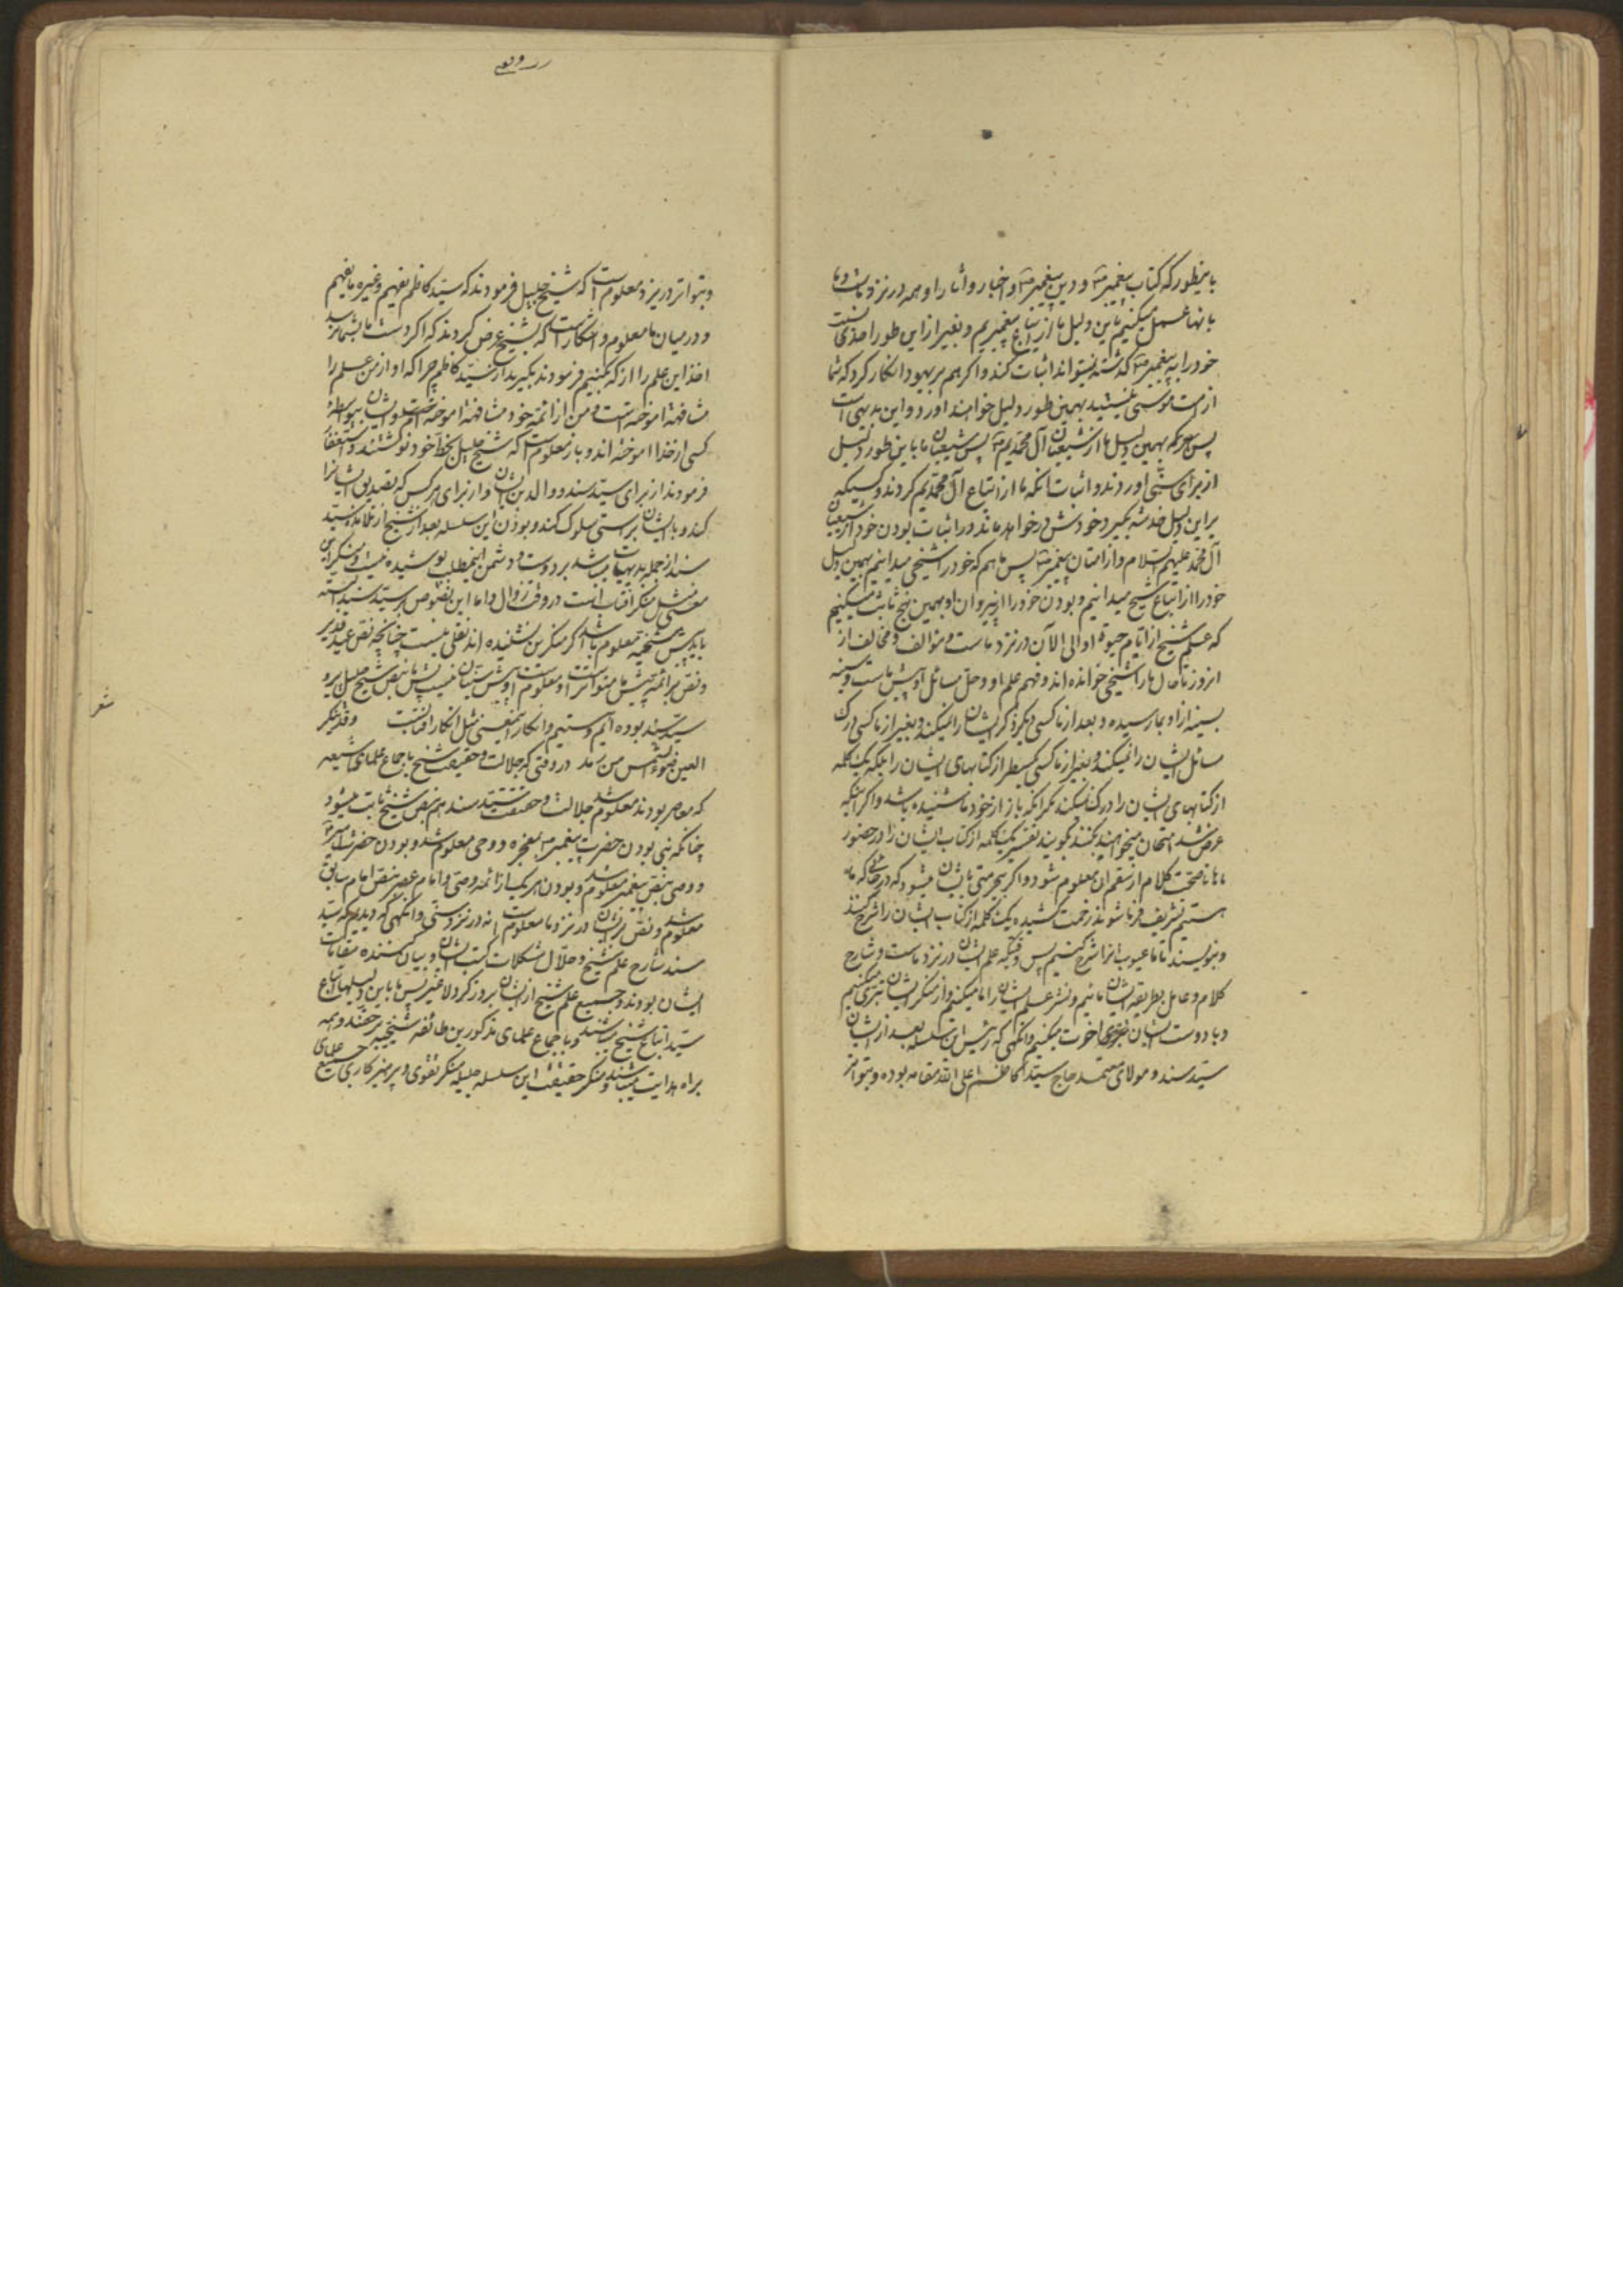 باینطور که کتاب پیغمبر ص و دین پیغمبر ص و اخبار و آثار او همه در نزد ماست و ما
بانها عمل میکنیم باین دلیل ما از اتباع پیغمبریم و بغیر از این طور احدی نسبت
خود را به پیغمبر ص گذشته نمیتواند اثبات کند و اگر هم بر یهود انکار کرد که شما
از امت موسی نیستید بهمین طور دلیل خواهند اورد و این بدیهی است
پس همین دلیل ما از شیعیان آل محمدیم ص پس شیعیان ما باین طور دلیل
از برای سنی اوردند و اثبات انکه ما از اتباع آل محمدیم کردند و کسیکه
بر این دلیل خدشه بگیرد خودش در خواهد ماند در اثبات بودن خود از شیعیان
آل محمد علیهم السلام و از امتان پیغمبر ص پس ما هم که خود را شیخی میدانیم بهمین دلیل
خود را از اتباع شیخ میدانیم و بودن خود را از پیروان او بهمین نهج ثابت میکنیم
که علم شیخ از ایام حیوة او الی الآن در نزد ماست و مؤالف و مخالف از
انروز تا حال ما را شیخی خوانده اند و فهم علم او و حل مسائل او پیش ماست و سینه
بسینه از او بما رسیده و بعد از ما کسی دیگر ذکر ایشان را نمیکند و بغیر از ما کسی درک
مسائل ایشان را نمیکند و بغیر از ما کسی یکسطر از کتابهای ایشان را بلکه یک کلمه
از کتابهای ایشان را درک نمیکند مگر انکه باز از خود ما شنیده باشد و اگر اینکه
عرض شد امتحان میخواهید بکنند بگویند تفسیر یک کلمه از کتاب ایشان را در حضور
ماها تا صحت کلام از سقم ان معلوم شود و اگر بیحرمتی بایشان میشود که در جائی که ما
هستیم تشریف فرما شوند زحمت کشیده یک کلمه از کتاب ایشان را شرح کنند
و بنویسند تا ما عیوب انرا شرح کنیم پس وقتیکه علم ایشان در نزد ماست و شارح
کلام و عامل بطریقه ایشان مائیم و نشر علم ایشان را ما میکنیم و از منکر ایشان تبری میکنیم
و با دوست ایشان اخوت میکنیم و انگهی که رئیس این سلسله بعد از ایشان
سید سند و مولای معتمد حاج سید کاظم اعلی الله مقامه بوده و بتواتر
و بتواتر در یزد معلوم است که شیخ جلیل فرمودند که سید کاظم یفهم و غیره ما یفهم
و در میان ما معلوم و اشکار است که بشیخ عرض کردند که اگر دست ما بشما نرسد
اخذ این علم را از که بکنیم فرمودند بگیرید از سید کاظم چرا که او از من علم را
مشافهة اموخته است و من از ائمه خود مشافهة اموخته ام و ایشان بیواسطه
کسی از خدا اموخته اند و باز معلوم است که شیخ جلیل بخط خود نوشتند و استغفار
فرمودند از برای سید سند و والدین ایشان و از برای هر کس که تصدیق ایشانرا
کند و با ایشان براستی سلوک کند و بودن این سلسله بعد از شیخ از تلامذه سید
سند از جمله بدیهیات میباشد بر دوست و دشمن اینمطلب پوشیده نیست و منکر این
معنی مثل منکر آفتاب است در وقت زوال و اما این نصوص بر سید سند البته
باید پیش شیخیه معلوم باشد اگر منکرین نشنیده اند نقلی نیست چنانچه نص عید غدیر
و نص بر ائمه پیش ما متواتر است و معلوم است و پیش سنیان نیست پس ما بنص شیخ جلیل پیرو
سید سند بوده ایم و هستیم و انکار اینمعنی مثل انکار آفتابست وقد تنکر
العین ضوء الشمس من رمد در وقتی که جلالت و حقیقت شیخ باجماع علمای شیعه
که معاصر بودند معلوم شد جلالت و حقیقت سید سند هم بنص شیخ ثابت میشود
چنانکه نبی بودن حضرت پیغمبر ص بمعجزه و وحی معلوم شد و بودن حضرت امیر ع
و وصی بنص پیغمبر معلوم شد و بودن هر یک از ائمه وصی و امام عصر بنص امام سابق
معلوم شد و نص بر ایشان در نزد ما معلوم است نه در نزد سنی و انگهی که دیدیم که سید
سند شارح علم شیخ و حلال مشکلات کتب ایشان و بیان کننده مقامات
ایشان بودند و جمیع علم شیخ از ایشان بروز کرد لاغیر پس ما باین دلیلها اتباع
سید اتباع شیخ میباشند و باجماع علمای مذکورین طائفه شیخیه بر حقند و همه
براه هدایت میباشند و منکر حقیقت این سلسله جلیله منکر تقوی و پرهیزکاری جمیع علمای
شعر